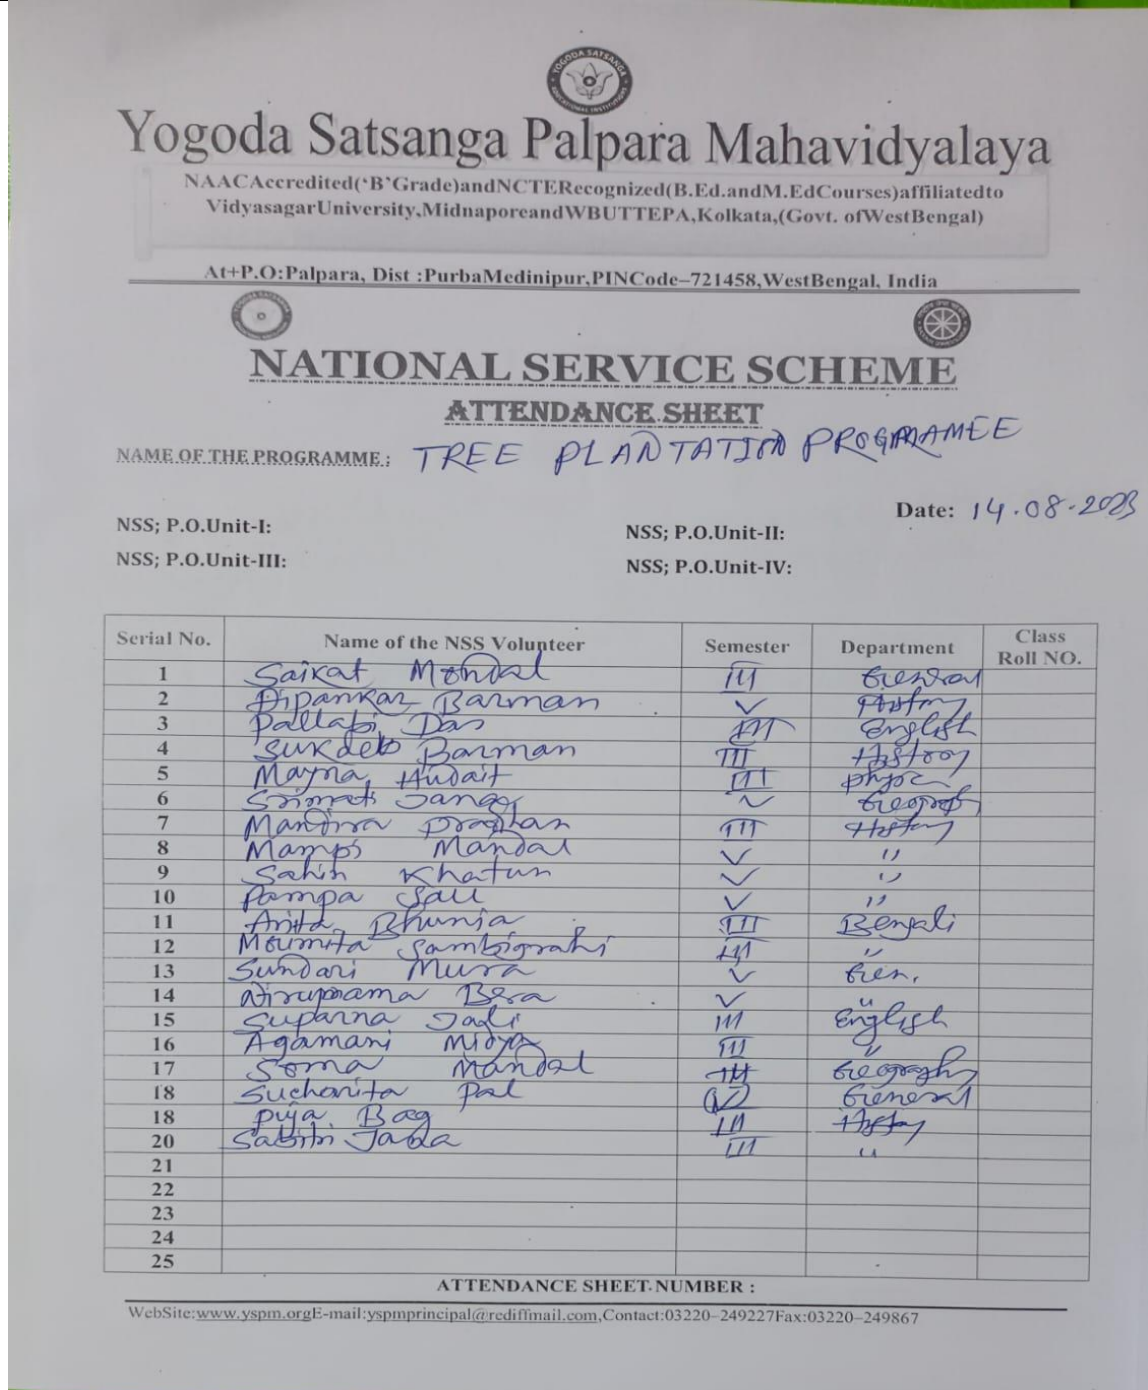 YOGODA SATSANGA
EDUCATIONAL INSTITUTIONS
Yogoda Satsanga Palpara Mahavidyalaya
NAACAccredited('B'Grade)andNCTERecognized(B.Ed.andM.EdCourses)affiliatedto
VidyasagarUniversity,MidnaporeandWBUTTEPA,Kolkata,(Govt. ofWestBengal)
At+P.O:Palpara, Dist :PurbaMedinipur,PINCode–721458,WestBengal, India
NATIONAL SERVICE SCHEME
ATTENDANCE SHEET
NAME OF THE PROGRAMME : TREE PLANTATION PROGRAMEE
Date: 14.08.2023
NSS; P.O.Unit-I: NSS; P.O.Unit-II:
NSS; P.O.Unit-III: NSS; P.O.Unit-IV:
Serial No. Name of the NSS Volunteer Semester Department Class Roll NO.
1 Saikat Mondal III General
2 Dipankar Barman V History
3 Pallabi Das III English
4 Sukdeb Barman III History
5 Mayna Hudait III
6 Srimati V Geograp
7 Mandira Pradhan III History
8 Mampi Mandal V "
9 Sahin Khatun V "
10 Pampa Sau V "
11 Anita Bhunia III Bengali
12 Moumita Sambigrahi III "
13 Sundari Mura V Gen.
14 Nirupama Bera V "
15 Suparna Jali III English
16 Agamani Midya III "
17 Soma Mandal III Geography
18 Sucharita Pal General
18 Puja Bag III History
20 Sabitri Jana III "
21
22
23
24
25
ATTENDANCE SHEET NUMBER :
WebSite:www.yspm.orgE-mail:yspmprincipal@rediffmail.com,Contact:03220–249227Fax:03220–249867